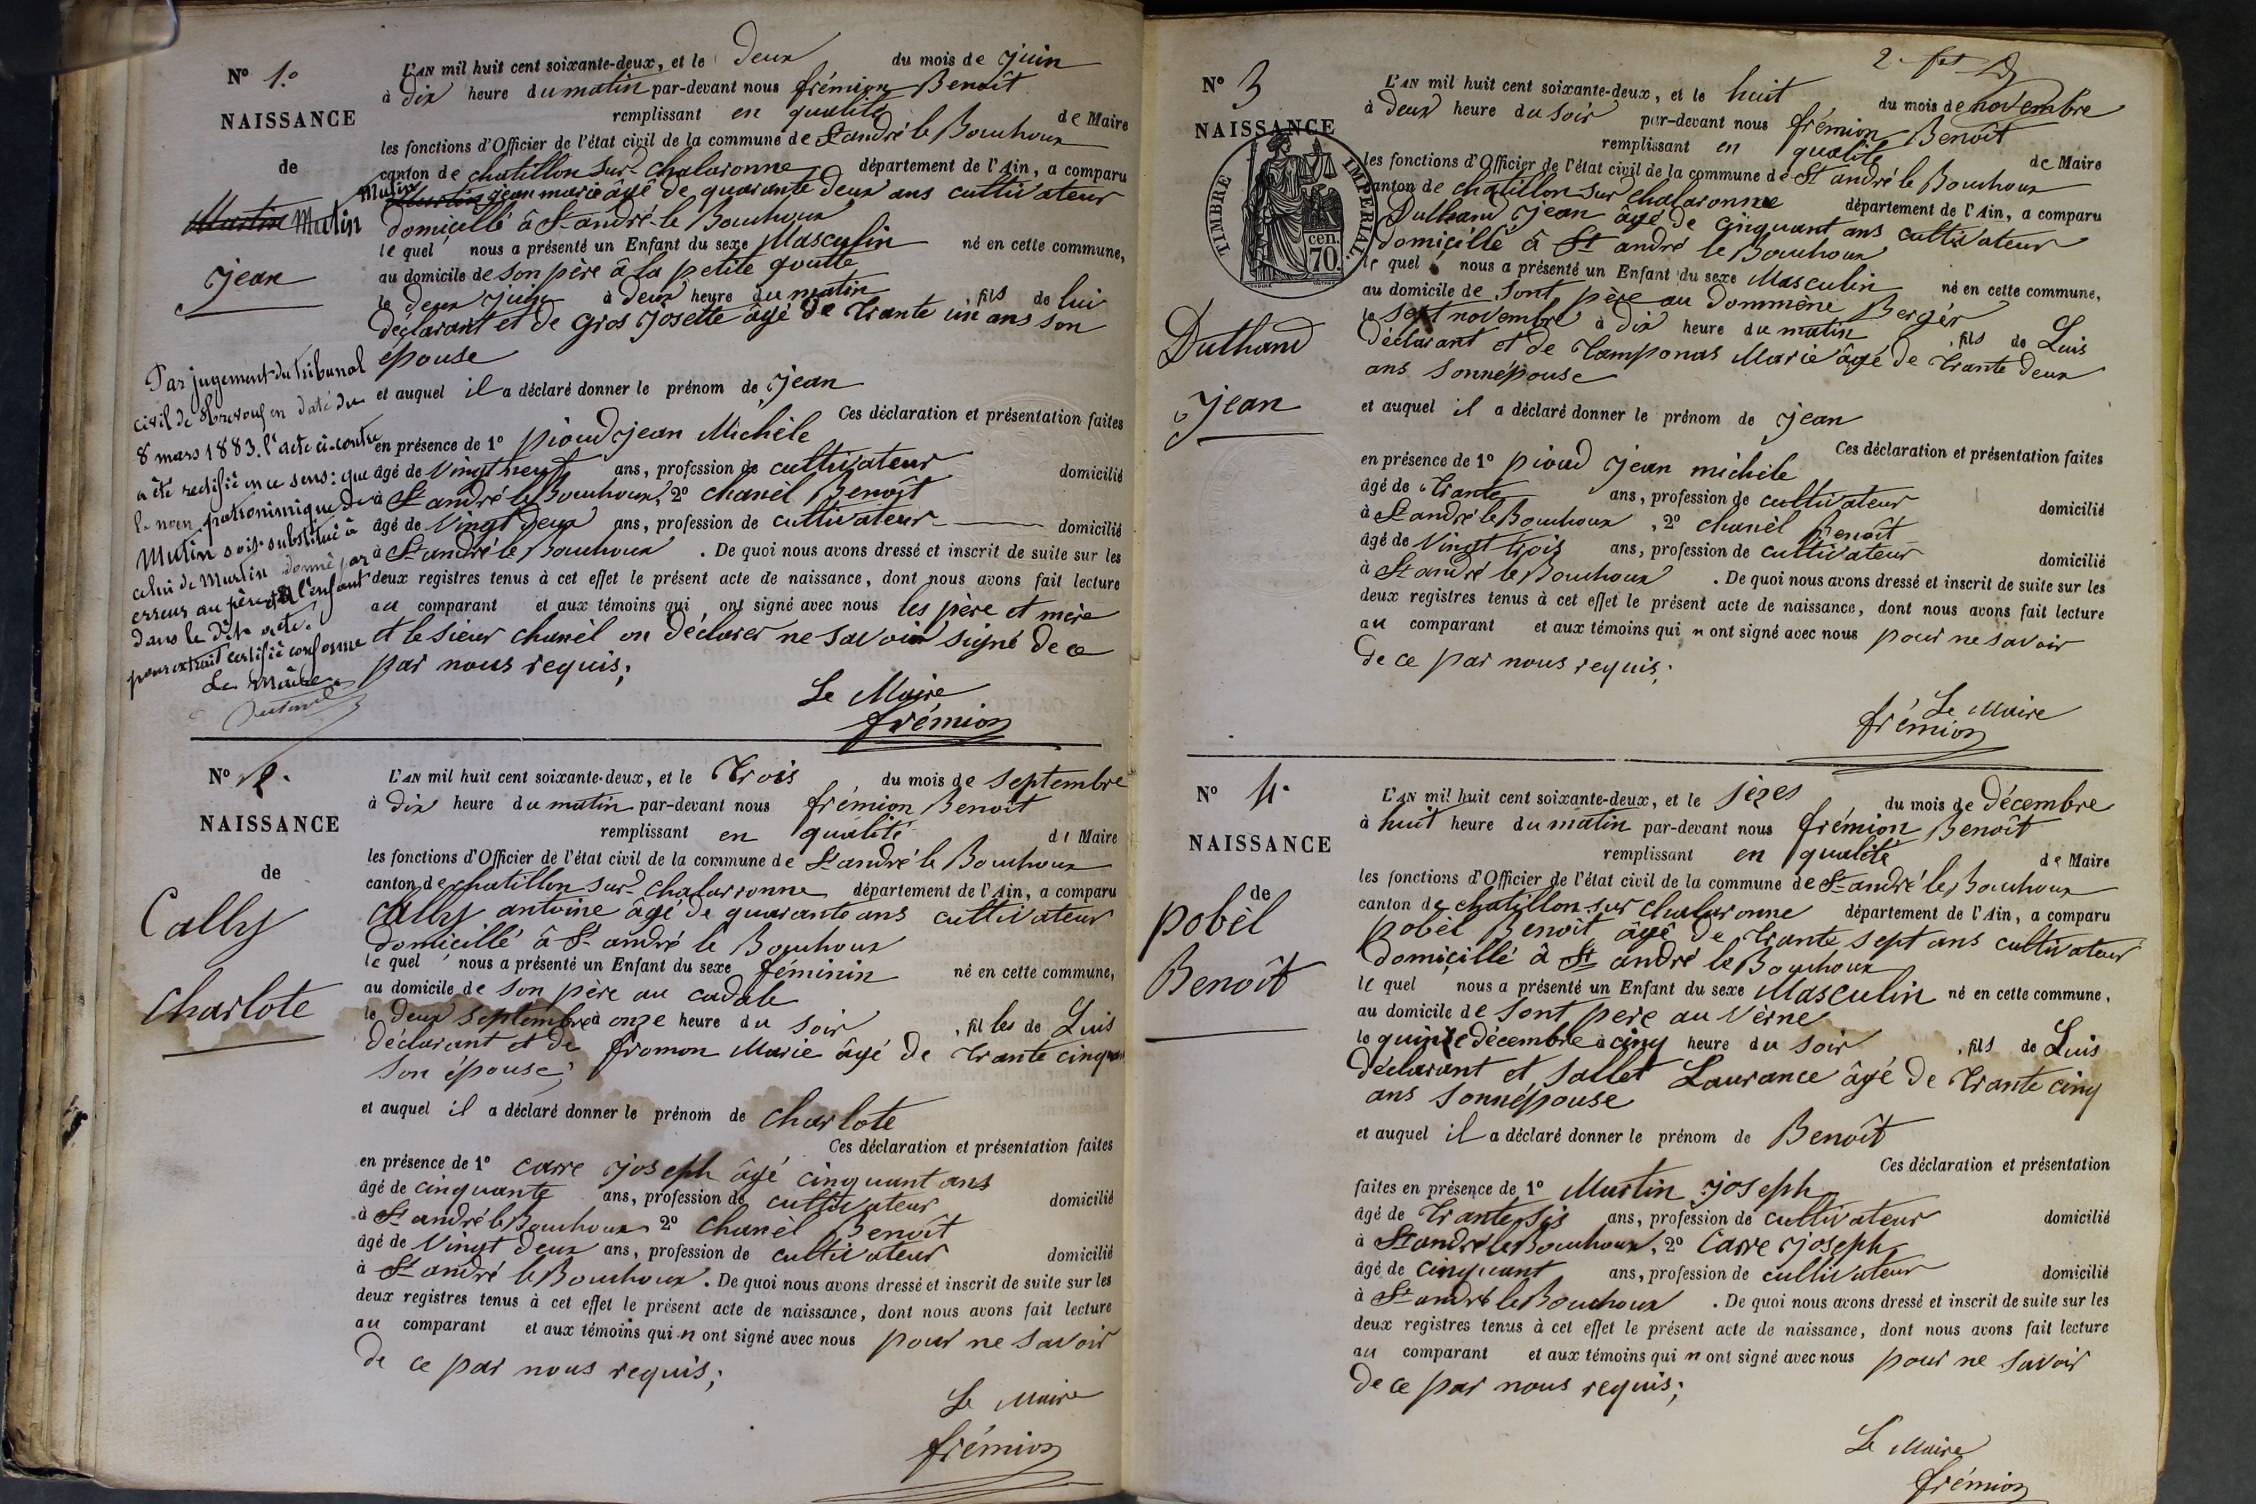 N° 1.°
NAISSANCE
de
Martin Mutin
Jean
L'AN mil huit cent soixante-deux, et le Deux du mois de juin
à Dix heure du matin par-devant nous frémion Benoît
remplissant en qualité de Maire
les fonctions d'Officier de l'état civil de la commune de St andré le Bouchoux
canton de chatillon sur chalaronne département de l'Ain, a comparu
Mutin
Martin jean marie âgé de quarante deux ans cultivateur
domicillé â St andré le Bouchoux
le quel nous a présenté un Enfant du sexe Masculin né en cette commune,
au domicile de son père â la petite goutte
le deux juin à deux heure du matin , fils de lui
déclarant et de Gros Josette âgé de trante un ans son
épouse
et auquel il a déclaré donner le prénom de jean
Ces déclaration et présentation faites
en présence de 1° pioud jean Michèle
âgé de Vingt neuf ans, profession de cultivateur domicilié
à St andré le Bouchoux, 2° chanèl Benoît
âgé de Vingt deux ans, profession de cultivateur domicilié
à St andré le Bouchoux . De quoi nous avons dressé et inscrit de suite sur les
deux registres tenus à cet effet le présent acte de naissance, dont nous avons fait lecture
au comparant et aux témoins qui ont signé avec nous les père et mère
et le sieur chanèl on déclarer ne savoir signé de ce
par nous requis;
Le Maire
frémion
Par jugement du tribunal
civil de en date du
8 mars 1883. l'acte ci-contre
a été rectifié en ce sens: que
le nom patronimique de
Mutin soit substitué à
celui de Martin donné par
erreur au père et à l'enfant
dans le dit acte.
pour extrait certifié conforme
Le Maire
N° 2.
NAISSANCE
de
Cally
Charlote
L'AN mil huit cent soixante-deux, et le trois du mois de septembre
à dix heure du matin par-devant nous frémion Benoît
remplissant en qualité de Maire
les fonctions d'Officier de l'état civil de la commune de St andré le Bouchoux
canton de chatillon sur chalarronne département de l'Ain, a comparu
Cally antoine âgé de quarante ans cultivateur
domicillé â St andré le Bouchoux
le quel nous a présenté un Enfant du sexe féminin né en cette commune,
au domicile de son père au cadale
le deux septembre à onze heure du soir , fil les de Luis
déclarant et de fromon Marie âgé de trante cinq ans
son épouse;
et auquel il a déclaré donner le prénom de charlote
Ces déclaration et présentation faites
en présence de 1° carre joseph âgé cinquant ans
âgé de cinquante ans, profession de cultivateur domicilié
à St andré le Bouchoux 2° chanèl Benoît
âgé de Vingt deux ans, profession de cultivateur domicilié
à St andré le Bouchoux . De quoi nous avons dressé et inscrit de suite sur les
deux registres tenus à cet effet le présent acte de naissance, dont nous avons fait lecture
au comparant et aux témoins qui n ont signé avec nous pour ne savoir
de ce par nous requis;
Le Maire
frémion
2
N° 3
NAISSANCE
TIMBRE IMPERIAL
cen.
70.
Duthand
Jean
L'AN mil huit cent soixante-deux, et le huit du mois de novembre
à deux heure du soir par-devant nous frémion Benoît
remplissant en qualité de Maire
les fonctions d'Officier de l'état civil de la commune de St andré le Bouchoux
canton de chatillon sur chalaronne département de l'Ain, a comparu
Duthand jean âgé de cinquant ans cultivateur
domicillé â St andré le Bouchoux
le quel nous a présenté un Enfant du sexe Masculin né en cette commune,
au domicile de sont père au dommène Berger
le sept novembre à dix heure du matin , fils de Luis
déclarant et de tamponas Marie âgé de trante deux
ans sonnépouse
et auquel il a déclaré donner le prénom de jean
Ces déclaration et présentation faites
en présence de 1° pioud jean michèle
âgé de trante ans, profession de cultivateur domicilié
à St andré le Bouchoux , 2° chanèl Benoît
âgé de Vingt trois ans, profession de cultivateur domicilié
à St andré le Bouchoux . De quoi nous avons dressé et inscrit de suite sur les
deux registres tenus à cet effet le présent acte de naissance, dont nous avons fait lecture
au comparant et aux témoins qui n ont signé avec nous pour ne savoir
de ce par nous requis;
Le Maire
frémion
N° 4.
NAISSANCE
de
pobèl
Benoît
L'AN mil huit cent soixante-deux, et le sèzes du mois de décembre
à huit heure du matin par-devant nous frémion Benoît
remplissant en qualité de Maire
les fonctions d'Officier de l'état civil de la commune de St andré le Bouchoux
canton de chatillon sur chalaronne département de l'Ain, a comparu
pobèl Benoît âgé de trante sept ans cultivateur
domicillé â St andré le Bouchoux
le quel nous a présenté un Enfant du sexe Masculin né en cette commune,
au domicile de sont pere au Vèrne
le quinze décembre à cinq heure du soir , fils de Luis
déclarant et Sallet Laurance âgé de trante cinq
ans sonnépouse
et auquel il a déclaré donner le prénom de Benoît
Ces déclaration et présentation
faites en présence de 1° Martin joseph
âgé de trante sis ans, profession de cultivateur domicilié
à St andré le Bouchoux, 2° Carre joseph
âgé de cinquant ans, profession de cultivateur domicilié
à St andré le Bouchoux . De quoi nous avons dressé et inscrit de suite sur les
deux registres tenus à cet effet le présent acte de naissance, dont nous avons fait lecture
au comparant et aux témoins qui n ont signé avec nous pour ne savoir
de ce par nous requis;
Le Maire
frémion